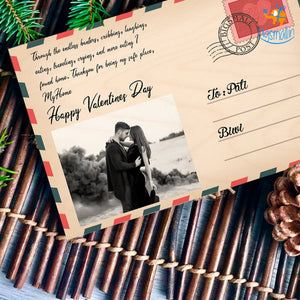 Through the endless banters, cribbing, laughing,
eating, traveling, crying, and more eating, I
found home. Thankyou for being my safe place.
MyHome
Happy Valentines Day
To: Pati
Biwi